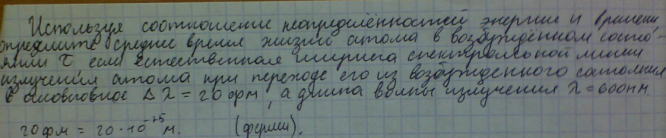 Используя соотношение неопределённостей энергии и времени
определите среднее время жизни атома в возбуждённом состо-
янии τ если естественная ширина спектральной линии
излучения атома при переходе его из возбуждённого состояния
в основное Δλ = 20 фм, а длина волны излучения λ = 600 нм
20 фм = 20 · 10⁻¹⁵ м. (ферми).